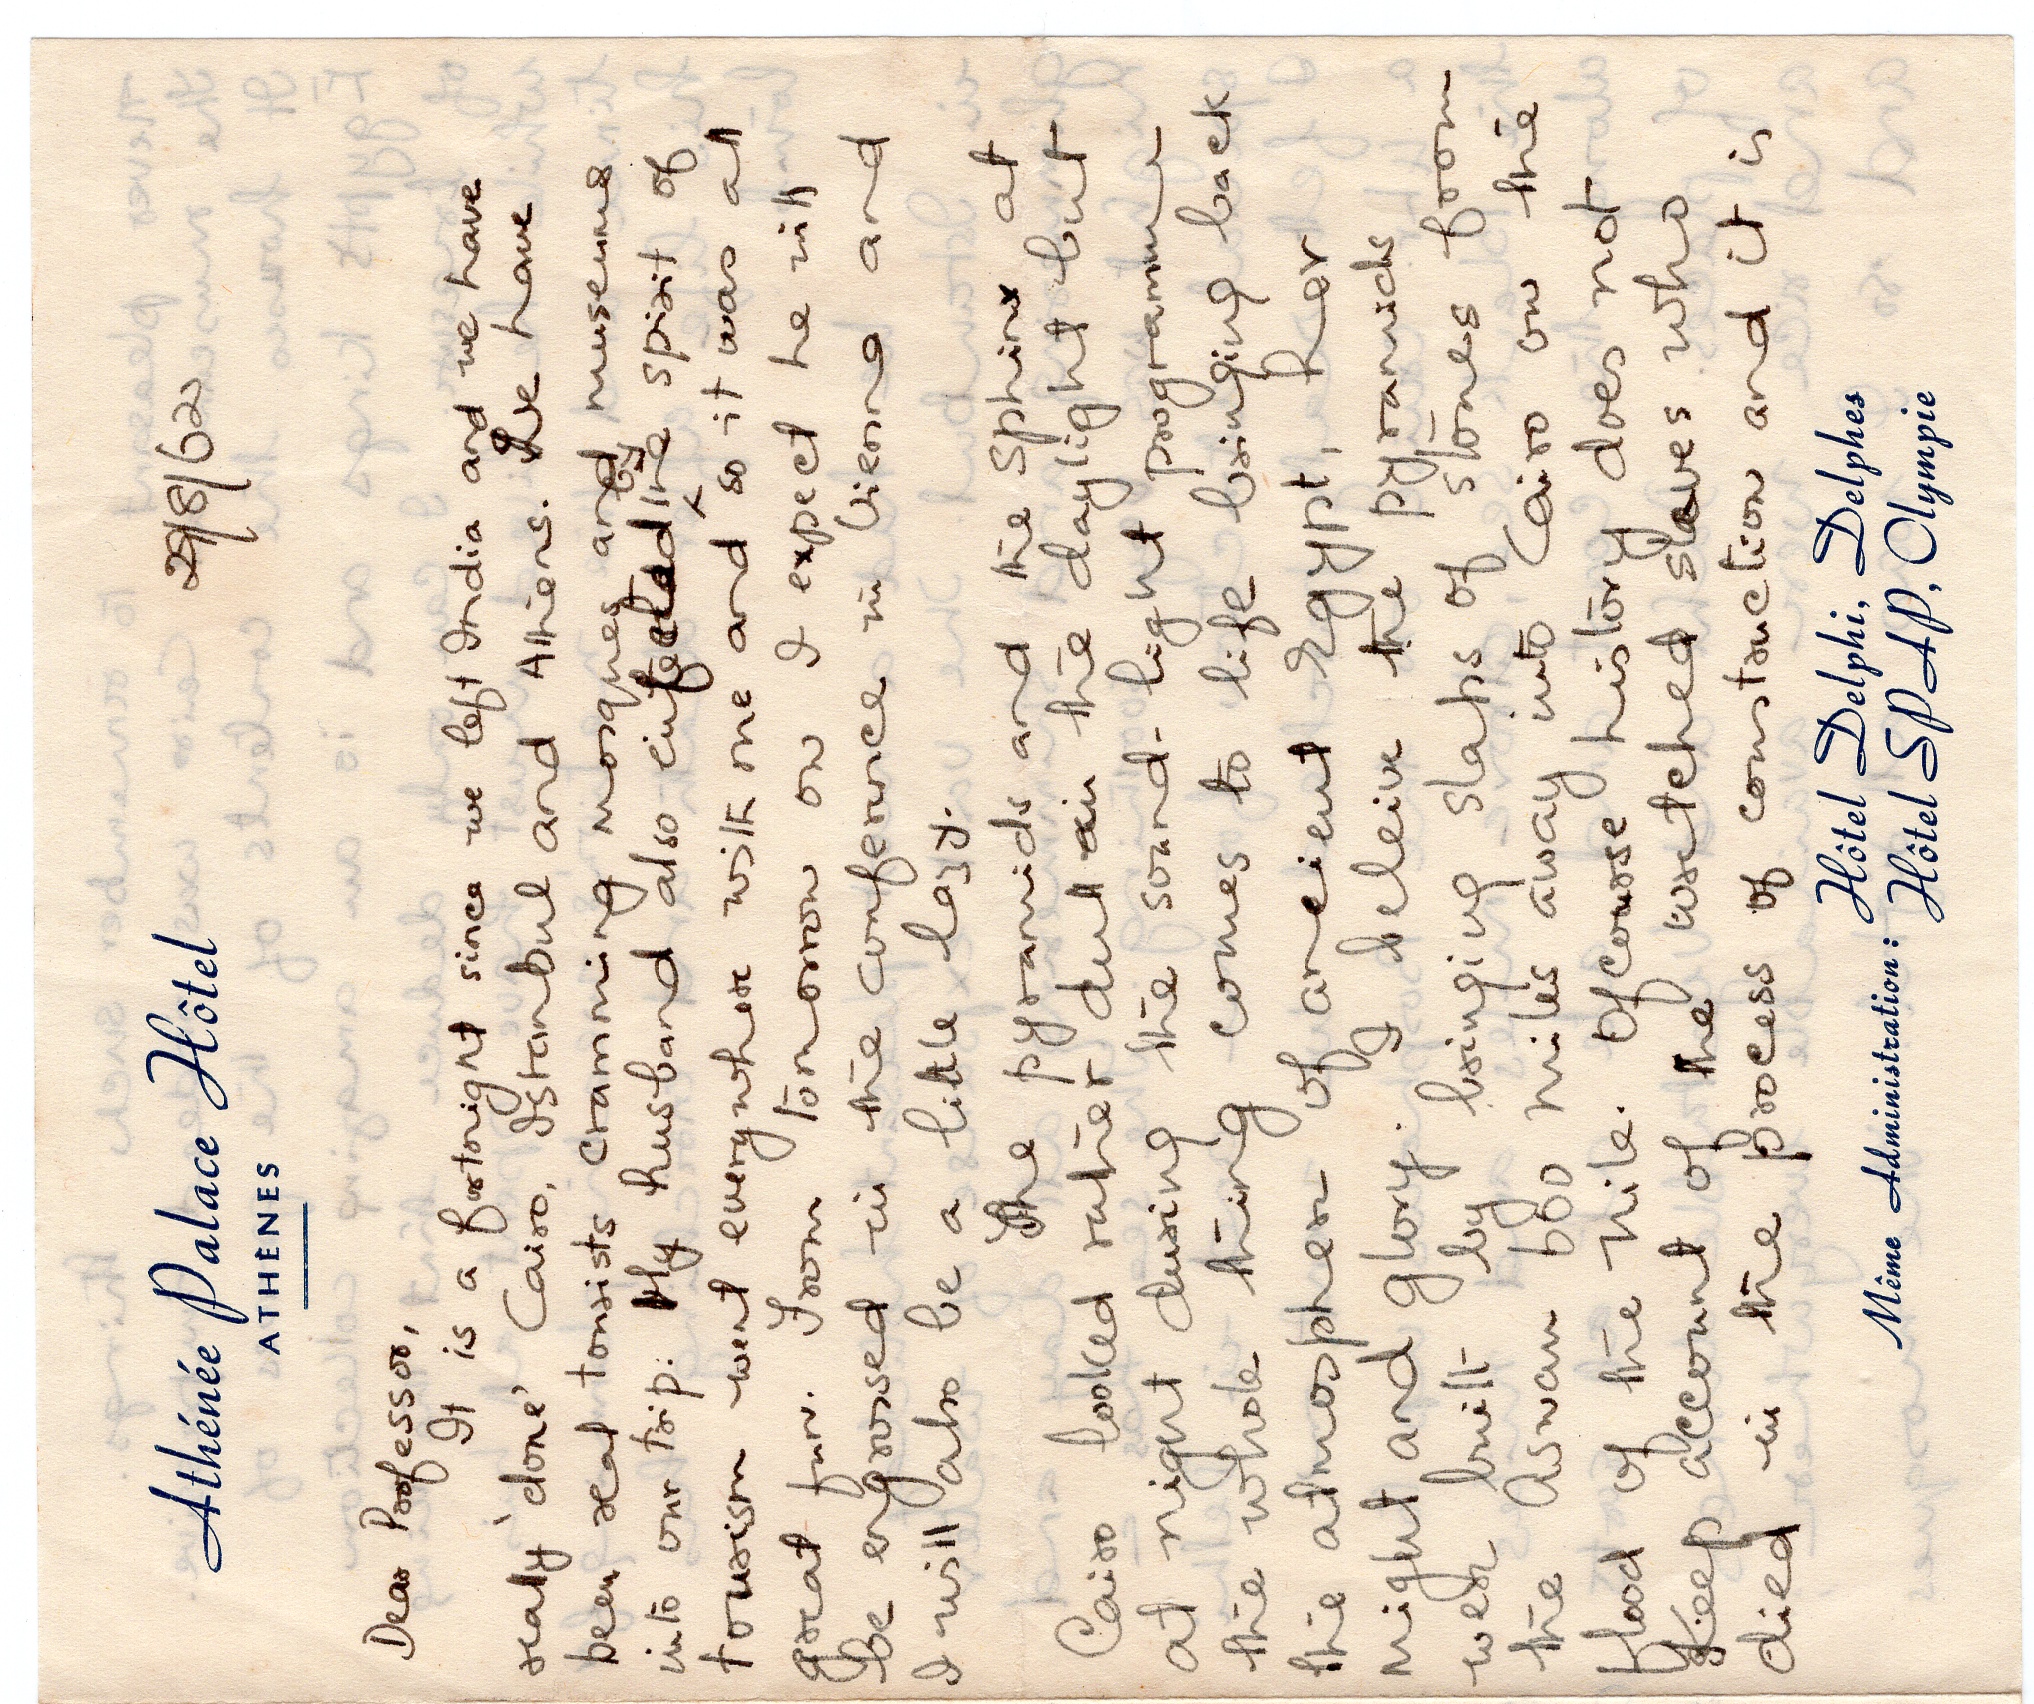 Athénée Palace Hôtel
ATHÈNES
29/8/62
Dear Professor,
It is a fortnight since we left India and we have
really 'done' Cairo, Istanbul and Athens. We have
been real tourists cramming mosques and museums
into our trip. My husband also infected by the spirit of
tourism went everywhere with me and so it was all
great fun. From tomorrow on I expect he will
be engrossed in the conference in Vienna and
I will also be a little lazy.
The pyramids and the Sphinx at
Cairo looked rather dull in the daylight but
at night during the sound-light programme
the whole thing comes to life bringing back
the atmospher of ancient Egypt, her
might and glory. I beleive the pyramids
wer built by bringing slabs of stones from
the Aswan 600 miles away into Cairo on the
flood of the Nile. Of course history does not
keep account of the wretched slaves who
died in the process of construction and it is
Même Administration: Hôtel Delphi, Delphes
Hôtel SPAP, Olympie